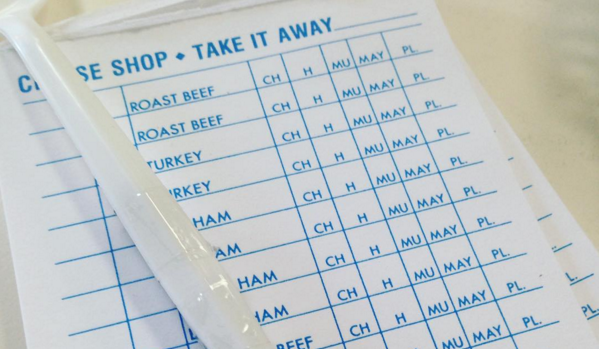 SHOP ♦ TAKE IT AWAY
ROAST BEEF CH H MU MAY PL.
ROAST BEEF CH H MU MAY PL.
TURKEY CH H MU MAY PL.
TURKEY CH H MU MAY PL.
HAM CH H MU MAY PL.
HAM CH H MU MAY PL.
HAM CH H MU MAY PL.
HAM CH H MU MAY PL.
BEEF CH H MU MAY PL.
MU MAY PL.